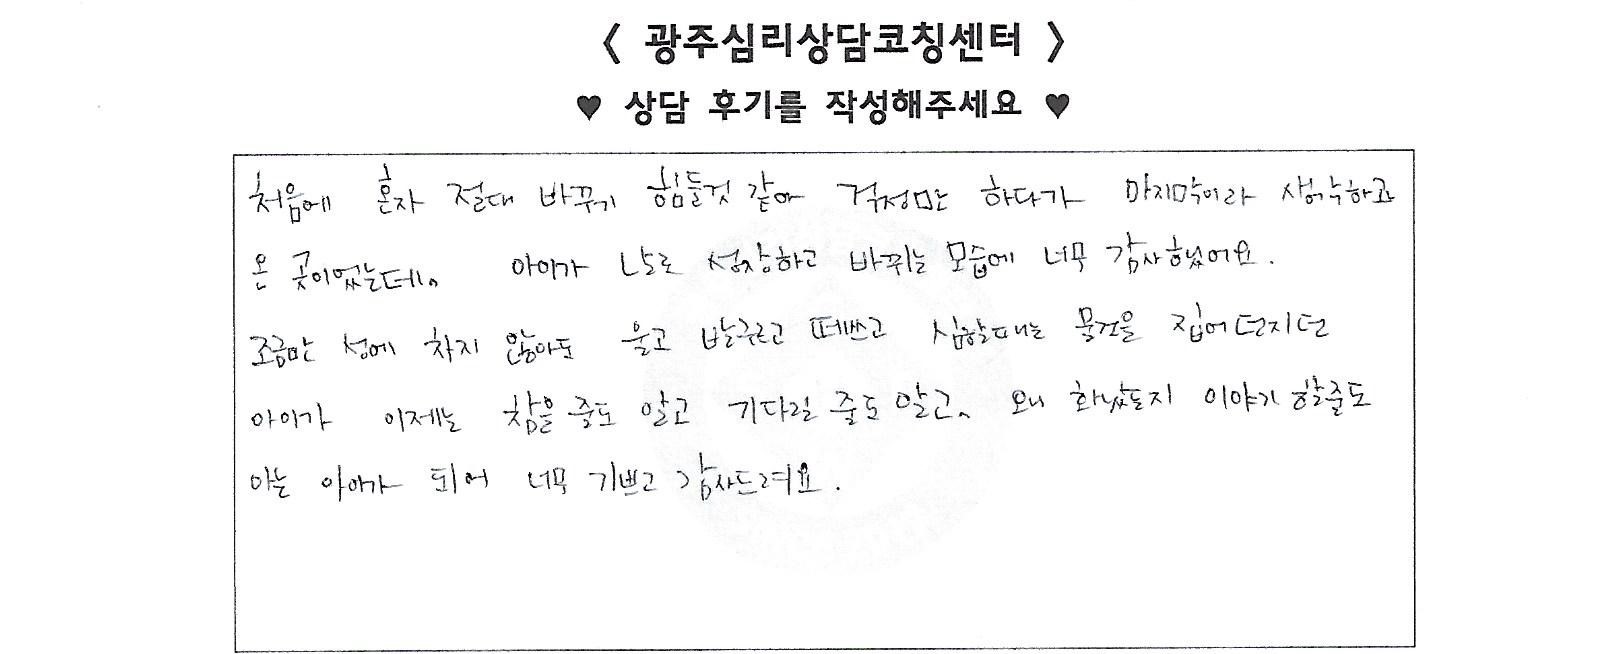 < 광주심리상담코칭센터 >
♥ 상담 후기를 작성해주세요 ♥
처음에 혼자 절대 바꾸기 힘들것 같아 걱정만 하다가 마지막이라 생각하고
온 곳이었는데. 아이가 날로 성장하고 바뀌는 모습에 너무 감사했어요.
조금만 성에 차지 않아도 울고 발구르고 떼쓰고 심할때는 물건을 집어던지던
아이가 이제는 참을 줄도 알고 기다릴 줄도 알고. 왜 화났는지 이야기 할줄도
아는 아이가 되어 너무 기쁘고 감사드려요.